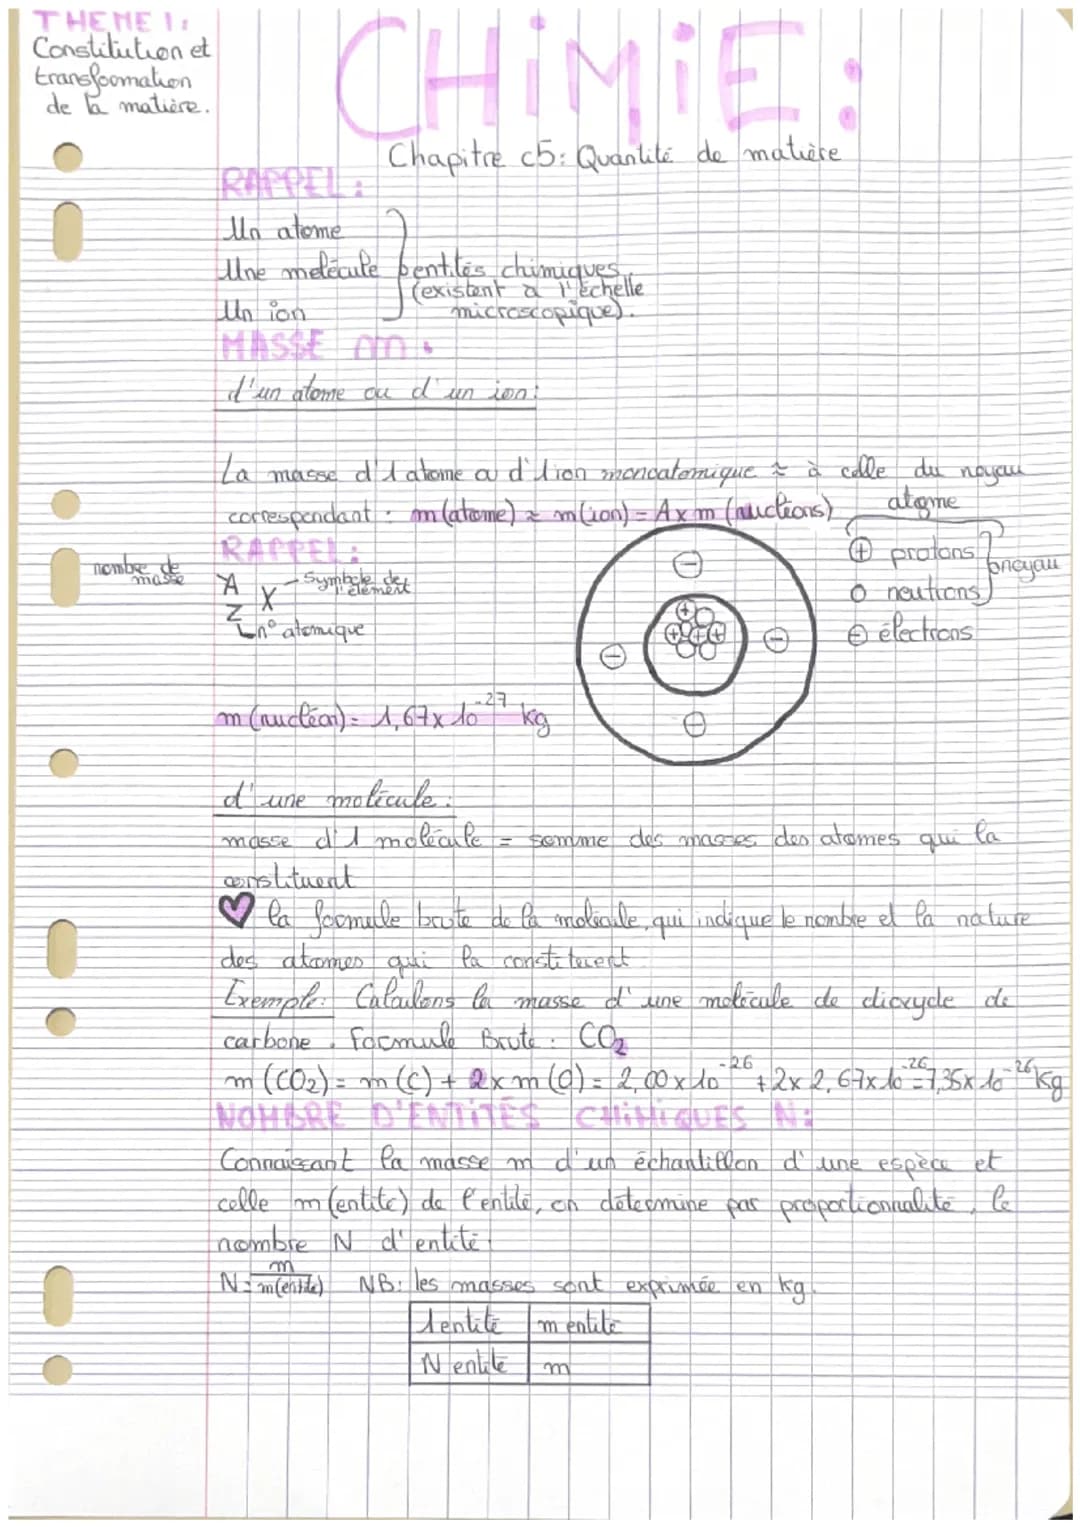 THEME 1:
Constitution et
transformation
de la matière.
CHiMiE:
Chapitre c5: Quantité de matière
RAPPEL:
Un atome
Une molécule } entités chimiques
(existent à l'échelle
Un ion microscopique).
MASSE m:
d'un atome ou d'un ion:
La masse d'1 atome ou d'1 ion monoatomique ≈ à celle du noyau
correspondant: m(atome) ≈ m(ion) = A x m (nuctions)
atome
RAPPEL:
nombre de
masse
A
Z X - Symbole de
l'élément
n° atomique
⊕ protons
O neutrons } noyau
⊖ électrons
m (nucléon) = 1,67 x 10⁻²⁷ kg
d'une molécule:
masse d'1 molécule = somme des masses des atomes qui la
constituent
♥ la formule brute de la molécule, qui indique le nombre et la nature
des atomes qui la constituent
Exemple: Calculons la masse d'une molécule de dioxyde de
carbone. Formule Brute: CO₂
m (CO₂) = m (C) + 2 x m (O) = 2,00 x 10⁻²⁶ + 2 x 2,67 x 10⁻²⁶ = 7,35 x 10⁻²⁶ Kg
NOMBRE D'ENTiTÉS CHiMiQUES N:
Connaissant la masse m d'un échantillon d'une espèce et
celle m (entité) de l'entité, on détermine par proportionnalité, le
nombre N d'entité
N = m/m(entité) NB: les masses sont exprimée en kg.
1 entité m entité
N entité m